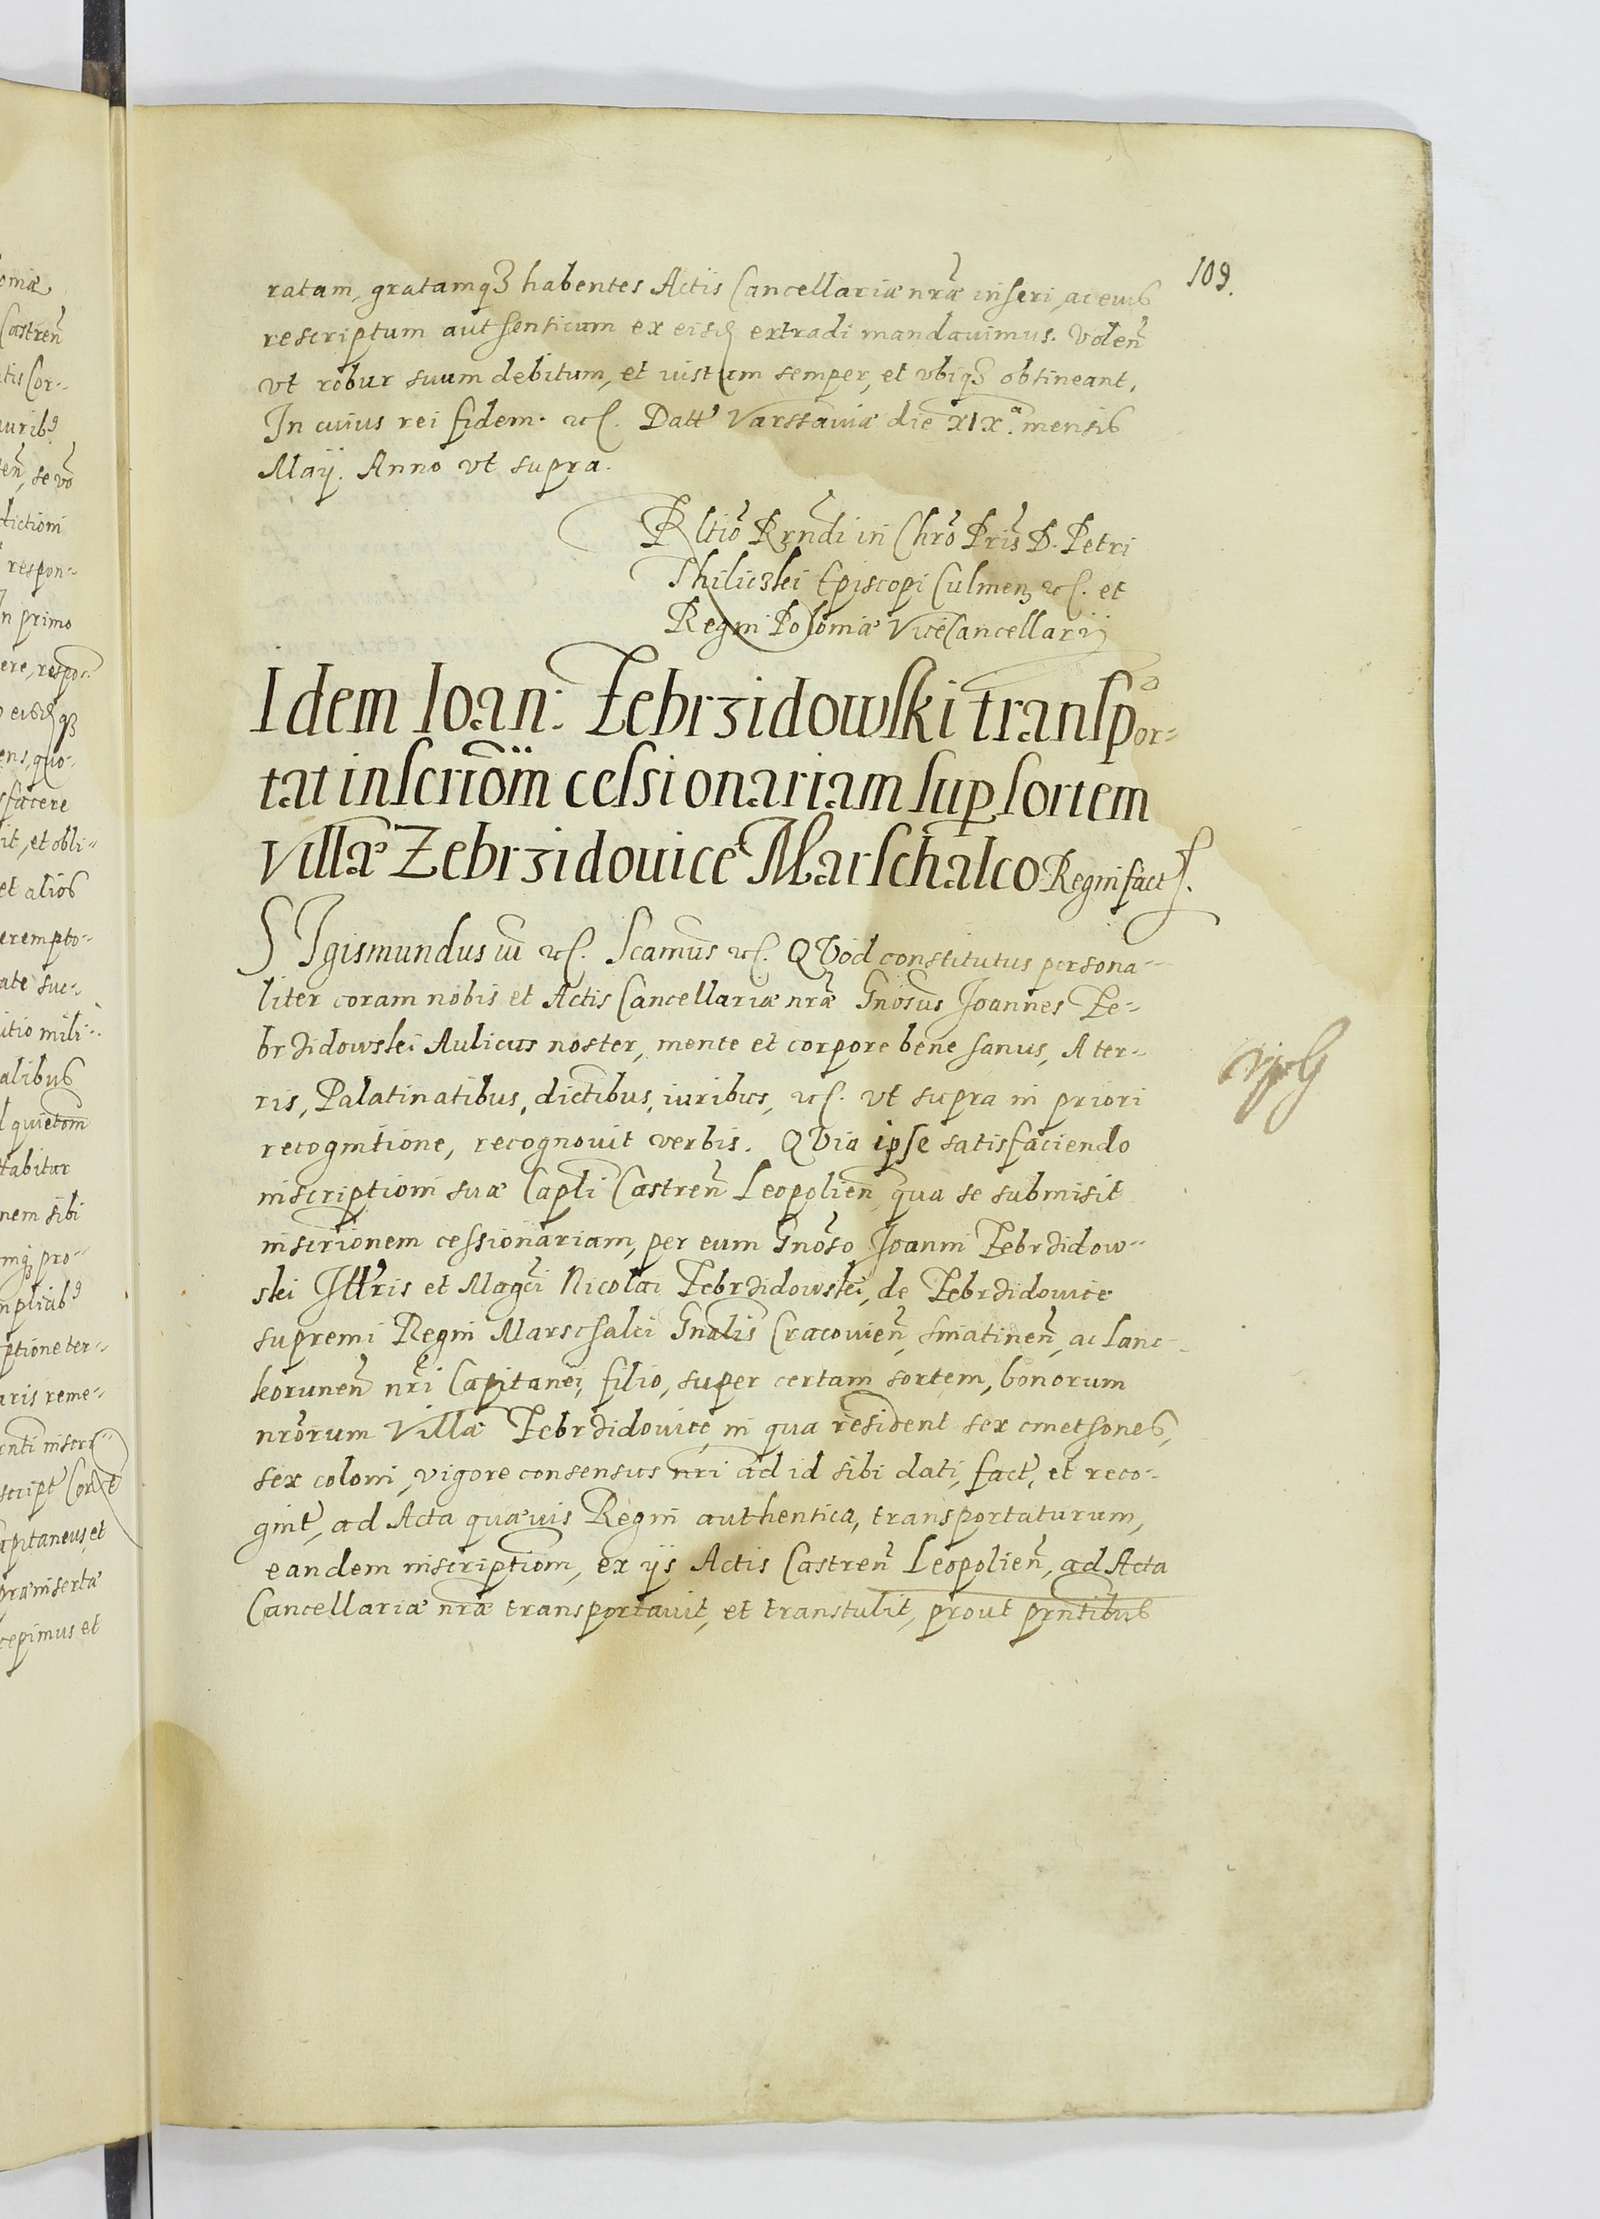 109.
ratam, gratamq₃ habentes Actis Cancellariæ nr̃æ inseri, ac eius
rescriptum authenticum ex eisd̃ extradi mandauimus. Volen̄
vt robur suum debitum, et iustum semper, et vbiq₃ obtineant,
In cuius rei fidem. etc. Datt' Varssauiæ die XIXa. mensis
Maij. Anno vt supra.
Rltio Rr̃ndi in Chr̃o Pris D. Petri
Thiliczki Episcopi Culmen₃ etc. et
Regni Poloniæ ViceCancellarij
Idem Ioan: Zebrzidowski transpor-
tat inscrio͠m cessionariam sup sortem
Villæ Zebrzidouice Marschalco Regni fact.
SIgismundus iii etc. Scamus etc. QVod constitutus persona-
liter coram nobis et Actis Cancellariæ nr̃æ Gnosus Joannes Ze-
brzidowski Aulicus noster, mente et corpore bene sanus, A ter-
ris, Palatinatibus, dictibus, iuribus, etc. vt supra in priori
recognitione, recognouit verbis. QVia ipse satisfaciendo
inscriptioni suæ Capli Castren̄ Leopolien̄ qua se submisit
inscrionem cessionariam, per eum Gnoso Joanni Zebrzidow-
ski Illris et Magci Nicolai Zebrzidowski, de Zebrzidouice
supremi Regni Marschalci Gnalis Cracouien̄, Sniatinen̄, ac Lanc-
korunen̄ nr̃i Capitanei, filio, super certam sortem, bonorum
nr̃orum Villæ Zebrzidouice, in qua resident sex cmethones,
sex coloni, vigore consensus nri ad id sibi dati, fact', et reco-
gnit', ad Acta quæuis Regni authentica, transportaturum,
eandem inscriptiom, ex ijs Actis Castren̄ Leopolien̄, ad Acta
Cancellariæ nræ transportauit, et transtulit, prout prntibus